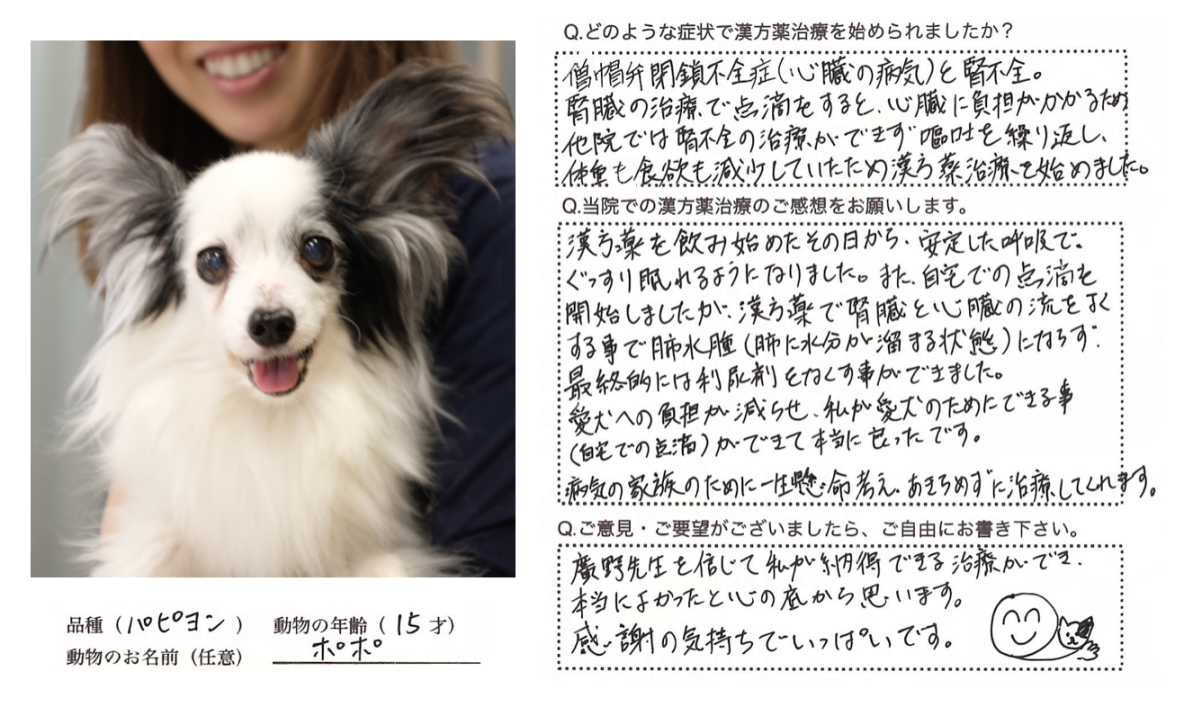 品種（パピヨン）　動物の年齢（15才）
動物のお名前（任意）　ポポ
Q.どのような症状で漢方薬治療を始められましたか？
僧帽弁閉鎖不全症(心臓の病気)と腎不全。
腎臓の治療で点滴をすると、心臓に負担がかかるため
他院では腎不全の治療ができず嘔吐を繰り返し、
体重も食欲も減少していたため漢方薬治療を始めました。
Q.当院での漢方薬治療のご感想をお願いします。
漢方薬を飲み始めたその日から、安定した呼吸で。
ぐっすり眠れるようになりました。また、自宅での点滴を
開始しましたが、漢方薬で腎臓と心臓の流をよく
する事で肺水腫(肺に水分が溜まる状態)にならず、
最終的には利尿剤をなくす事ができました。
愛犬への負担が減らせ、私が愛犬のためにできる事
(自宅での点滴)ができて本当に良ったです。
病気の家族のために一生懸命考え、あきらめずに治療してくれます。
Q.ご意見・ご要望がございましたら、ご自由にお書き下さい。
廣野先生を信じて私が納得できる治療ができ、
本当によかったと心の底から思います。
感謝の気持ちでいっぱいです。